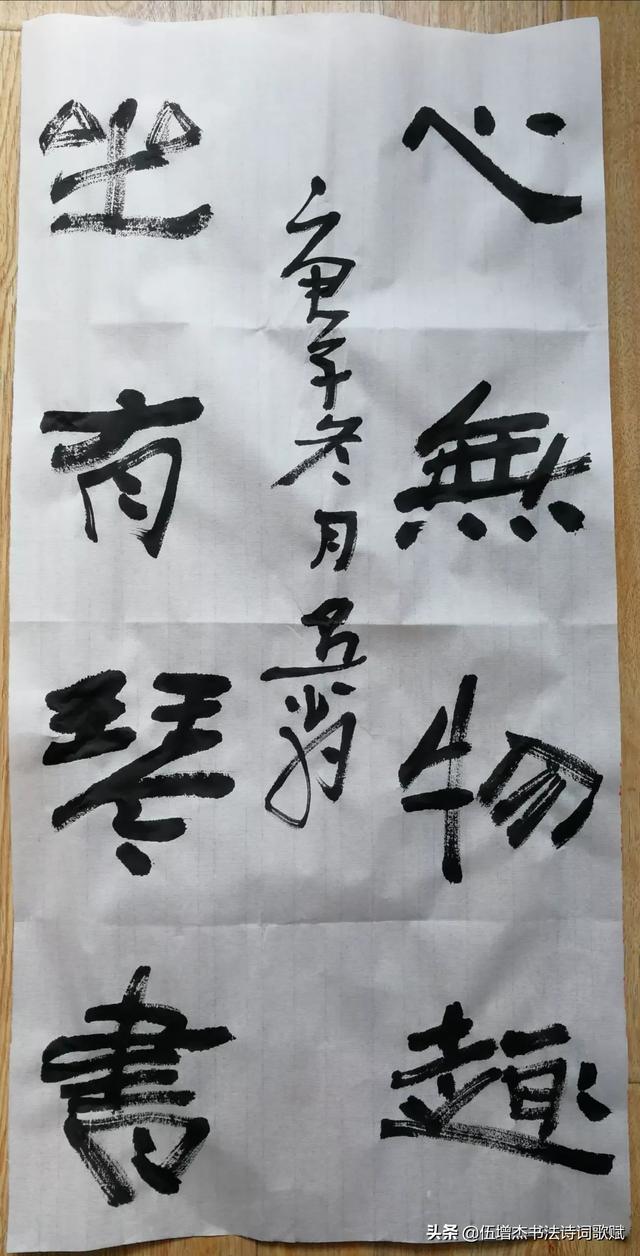 心無物趣
坐有琴書
庚子冬月五翁
头条 @伍增杰书法诗词歌赋